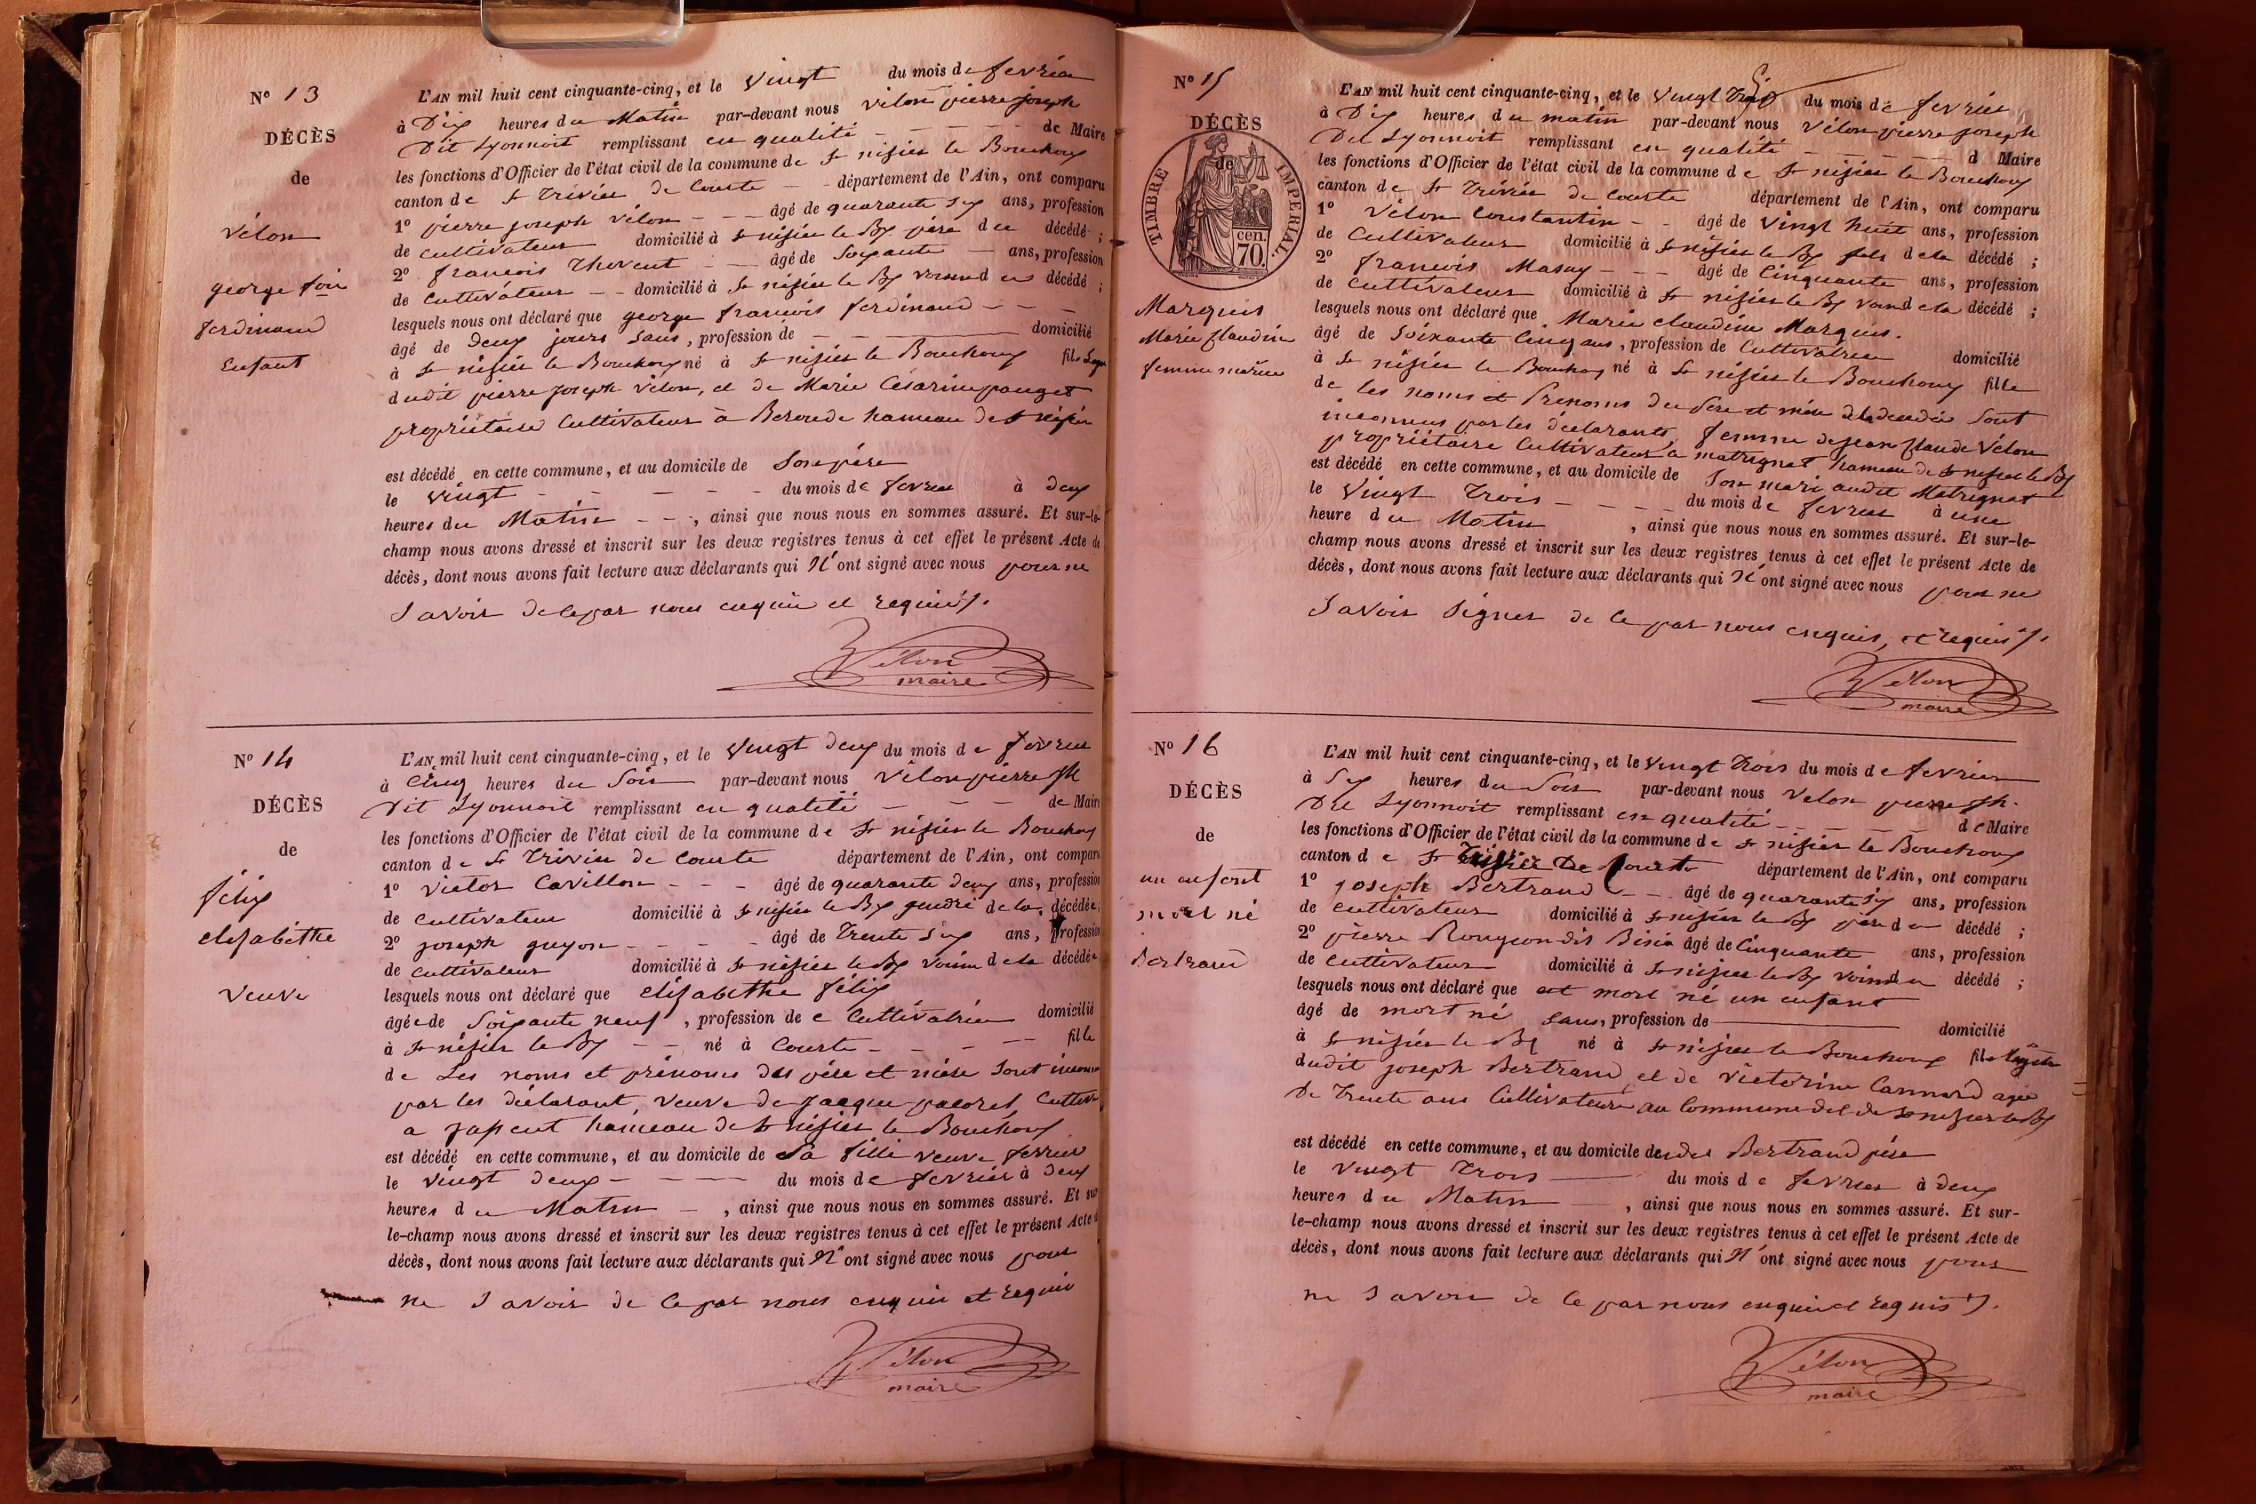 N° 13
DÉCÈS
de
Vélon
george foois
ferdinand
Enfant
L'AN mil huit cent cinquante-cinq, et le Vingt du mois de fevrier
à Dix heures du Matin par-devant nous vélon pierre joseph
Dit Lyonnoit remplissant en qualité - - - - - de Maire
les fonctions d'Officier de l'état civil de la commune de St nisier le Bouchoux
canton de St Trivier de Courte - département de l'Ain, ont comparu
1° pierre joseph vélon - - - âgé de quarante six ans, profession
de cultivateur domicilié à St nisier le Bx père du décédé ;
2° francois Thevent - - âgé de Soixante - ans, profession
de Cultivateur - - domicilié à St nisier le Bx voisin du décédé ;
lesquels nous ont déclaré que george francois ferdinand - - -
âgé de Deux jours Sans, profession de domicilié
à St nisier le Bouchoux né à St nisier le Bouchoux fils
dudit pierre joseph vélon, et de Marie Césarine pauget
propriétaire Cultivateur à Beroude hameau de St nisier
est décédé en cette commune, et au domicile de Son père
le vingt - - - - - du mois de fevrier à deux
heures du Matin - - -, ainsi que nous nous en sommes assuré. Et sur-le-
champ nous avons dressé et inscrit sur les deux registres tenus à cet effet le présent Acte de
décès, dont nous avons fait lecture aux déclarants qui N'ont signé avec nous pour ne
Savoir de ce par nous enquis et requis /.
Vélon
maire
N° 14
DÉCÈS
de
félix
elisabethe
veuve
L'AN mil huit cent cinquante-cinq, et le Vingt deux du mois de fevrier
à Cinq heures du Soir par-devant nous Vélon pierre Jh
Dit Lyonnoit remplissant en qualité - - - de Maire
les fonctions d'Officier de l'état civil de la commune de St nisier le Bouchoux
canton de St Trivier de Courte département de l'Ain, ont comparu
1° victor Cavillon - - - âgé de quarante deux ans, profession
de Cultivateur domicilié à St nisier le Bx gendre de la décédée ;
2° joseph guyon - - - - âgé de Trente Six ans, profession
de Cultivateur domicilié à St nisier le Bx voisin de la décédée
lesquels nous ont déclaré que elisabethe félix
âgée de Soixante neuf, profession de Cultivatrice domicilié
à St nisier le Bx - - né à Courte - - - - fille
de Les noms et prénoms des père et mère Sont inconnus
par les déclarant, veuve de jacque pacoret, Cultiv
a hameau de St nisier le Bouchoux
est décédé en cette commune, et au domicile de Sa fille veuve ferrier
le vingt deux - - - - du mois de fevrier à deux
heures du Matin -, ainsi que nous nous en sommes assuré. Et sur
le-champ nous avons dressé et inscrit sur les deux registres tenus à cet effet le présent Acte d
décès, dont nous avons fait lecture aux déclarants qui N'ont signé avec nous pour
ne Savoir de ce par nous enquis et requis
Vélon
maire
N° 15
DÉCÈS
de
TIMBRE IMPÉRIAL.
cen.
70.
Marquis
Marie Claudine
femme mariée
L'AN mil huit cent cinquante-cinq, et le Vingt Trois du mois de fevrier
à Dix heures du matin par-devant nous Vélon pierre joseph
Dit Lyonnoit remplissant en qualité - - - - - d Maire
les fonctions d'Officier de l'état civil de la commune de St nisier le Bouchoux
canton de St Trivier de Courte département de l'Ain, ont comparu
1° Vélon Constantin - âgé de Vingt huit ans, profession
de Cultivateur domicilié à St nisier le Bx fils de la décédé ;
2° francois Masuy - - - âgé de Cinquante ans, profession
de Cultivateur domicilié à St nisier le Bx voisin de la décédé ;
lesquels nous ont déclaré que Marie Claudine Marquis.
âgé de Soixante Cinq ans, profession de Cultivatrice domicilié
à St nisier le Bouchoux né à St nisier le Bouchoux fille
de les noms et Prenoms du Père et mère de la décédée Sont
inconnus par les déclarants, femme de jean Claude Vélon
propriétaire Cultivateur à matregnat hameau de St nisier le Bx
est décédé en cette commune, et au domicile de Son mari audit Matregnat
le Vingt Trois - - - - du mois de fevrier à une
heure du Matin, ainsi que nous nous en sommes assuré. Et sur-le-
champ nous avons dressé et inscrit sur les deux registres tenus à cet effet le présent Acte de
décès, dont nous avons fait lecture aux déclarants qui N'ont signé avec nous pour ne
Savoir Signer de ce par nous enquis, et requis /.
Vélon
maire
N° 16
DÉCÈS
de
un enfent
mort né
Bertrand
L'AN mil huit cent cinquante-cinq, et le Vingt Trois du mois de fevrier
à Six heures du Soir par-devant nous Velon pierre Jh.
Dit Lyonnoit remplissant en qualité - - - - - de Maire
les fonctions d'Officier de l'état civil de la commune de St nisier le Bouchoux
canton de St De Courte département de l'Ain, ont comparu
1° joseph Bertrand - - âgé de quarante six ans, profession
de Cultivateur domicilié à St nisier le Bx père du décédé ;
2° pierre Rougeon dit Bisia âgé de Cinquante ans, profession
de Cultivateur domicilié à St nisier le Bx voisin du décédé ;
lesquels nous ont déclaré que est mort né un enfant
âgé de mort né Sans, profession de domicilié
à St nisier le Bx né à St nisier le Bouchoux fils légitime
dudit joseph Bertrand et de Victorine Cannard agée
De Trente ans Cultivateurs au Commune dit de St nisier le Bx
est décédé en cette commune, et au domicile de dit Bertrand père
le vingt trois du mois de fevrier à deux
heures du Matin, ainsi que nous nous en sommes assuré. Et sur-
le-champ nous avons dressé et inscrit sur les deux registres tenus à cet effet le présent Acte de
décès, dont nous avons fait lecture aux déclarants qui N'ont signé avec nous pour
ne Savoir de ce par nous enquis et requis /.
Vélon
maire